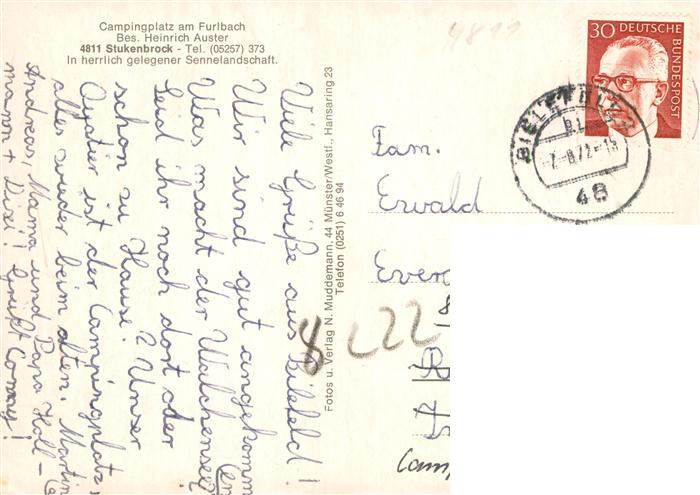 Campingplatz am Furlbach
Bes. Heinrich Auster
4811 Stukenbrock - Tel. (05257) 373
In herrlich gelegener Sennelandschaft.
Viele Grüße aus Bilefeld!
Wir sind gut angekommen
Was macht der Walchensee?
Seid ihr noch dort oder
schon zu Hause? Unser
ist der Campingplatz,
alles wieder beim alten. Martin
Andreas, Mama und Papa Holl-
mann + Dixi! Grüßt Conny!
Fotos u. Verlag N. Muddemann, 44 Münster/Westf., Hansaring 23
Telefon (0251) 6 46 94
4811
30 DEUTSCHE
BUNDESPOST
BIELEFELD
-7.-8.72-18
48
Fam.
Ewald
Ever
8
Cam